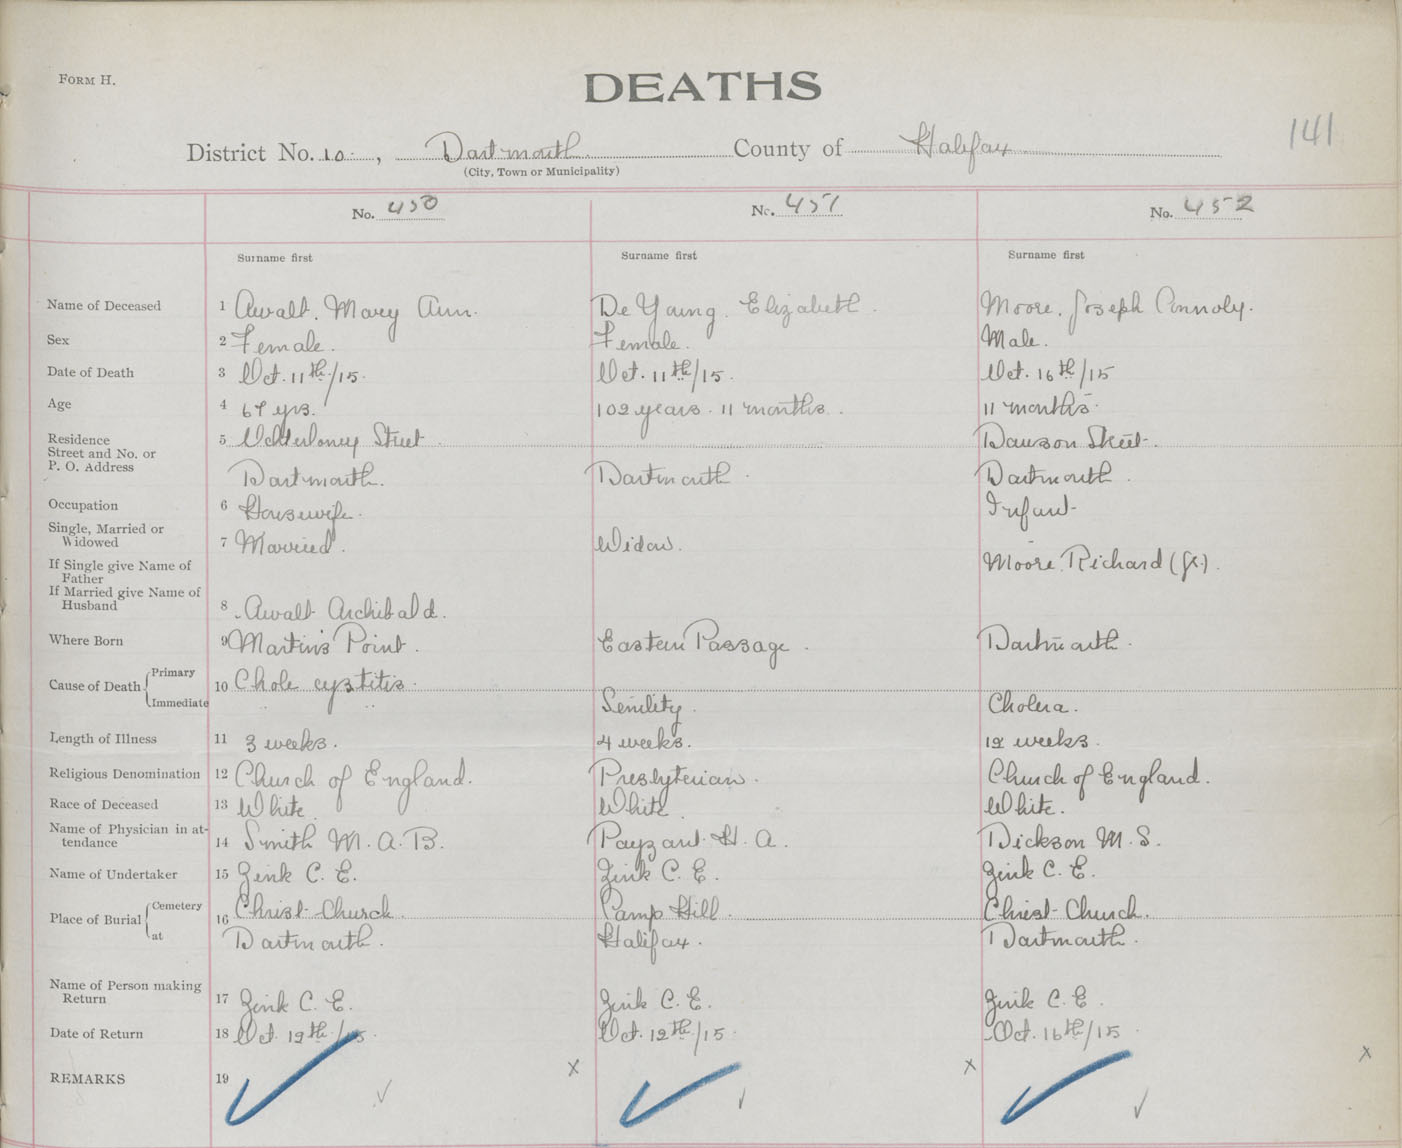 FORM H.
DEATHS
141
District No. 10, Dartmouth County of Halifax
(City, Town or Municipality)
No. 450 No. 451 No. 452
Surname first Surname first Surname first
Name of Deceased 1 Awalt, Mary Ann. De Young Elizabeth. Moore, Joseph Connoly.
Sex 2 Female. Female. Male.
Date of Death 3 Oct. 11th/15. Oct. 11th/15. Oct. 16th/15
Age 4 67 yrs. 102 years. 11 months. 11 months.
Residence 5 Ochterloney Street Dawson Street.
Street and No. or
P. O. Address Dartmouth. Dartmouth. Dartmouth.
Occupation 6 Housewife. Infant
Single, Married or
Widowed 7 Married. Widow.
If Single give Name of
Father Moore. Richard (Jr.).
If Married give Name of
Husband 8 Awalt Archibald.
Where Born 9 Martin's Point. Eastern Passage. Dartmouth.
Cause of Death Primary 10 Chole cystitis.
Immediate Senility. Cholera.
Length of Illness 11 3 weeks. 4 weeks. 12 weeks.
Religious Denomination 12 Church of England. Presbyterian. Church of England.
Race of Deceased 13 White. White. White.
Name of Physician in at-
tendance 14 Smith M. A. B. Payzant H. A. Dickson M. S.
Name of Undertaker 15 Zink C. E. Zink C. E. Zink C. E.
Place of Burial Cemetery 16 Christ Church. Camp Hill. Christ Church.
at Dartmouth. Halifax. Dartmouth.
Name of Person making
Return 17 Zink C. E. Zink C. E. Zink C. E.
Date of Return 18 Oct. 12th/15 Oct. 12th/15. Oct. 16th/15
REMARKS 19 x x x